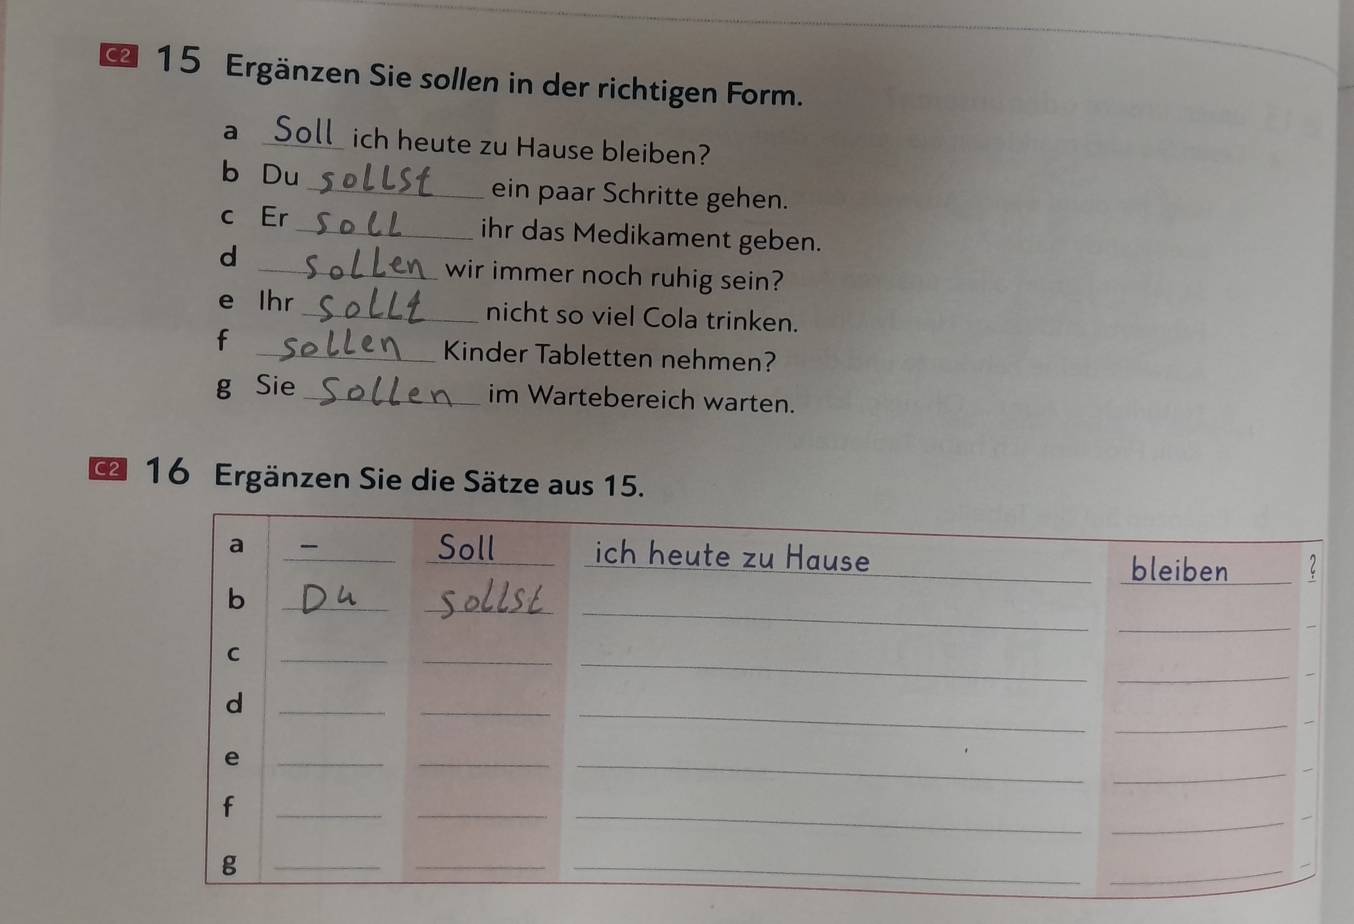 C2 15 Ergänzen Sie sollen in der richtigen Form.
a Soll ich heute zu Hause bleiben?
b Du sollst ein paar Schritte gehen.
c Er soll ihr das Medikament geben.
d sollen wir immer noch ruhig sein?
e Ihr sollt nicht so viel Cola trinken.
f sollen Kinder Tabletten nehmen?
g Sie sollen im Wartebereich warten.
C2 16 Ergänzen Sie die Sätze aus 15.
a – Soll ich heute zu Hause bleiben ?
b Du sollst
c
d
e
f
g